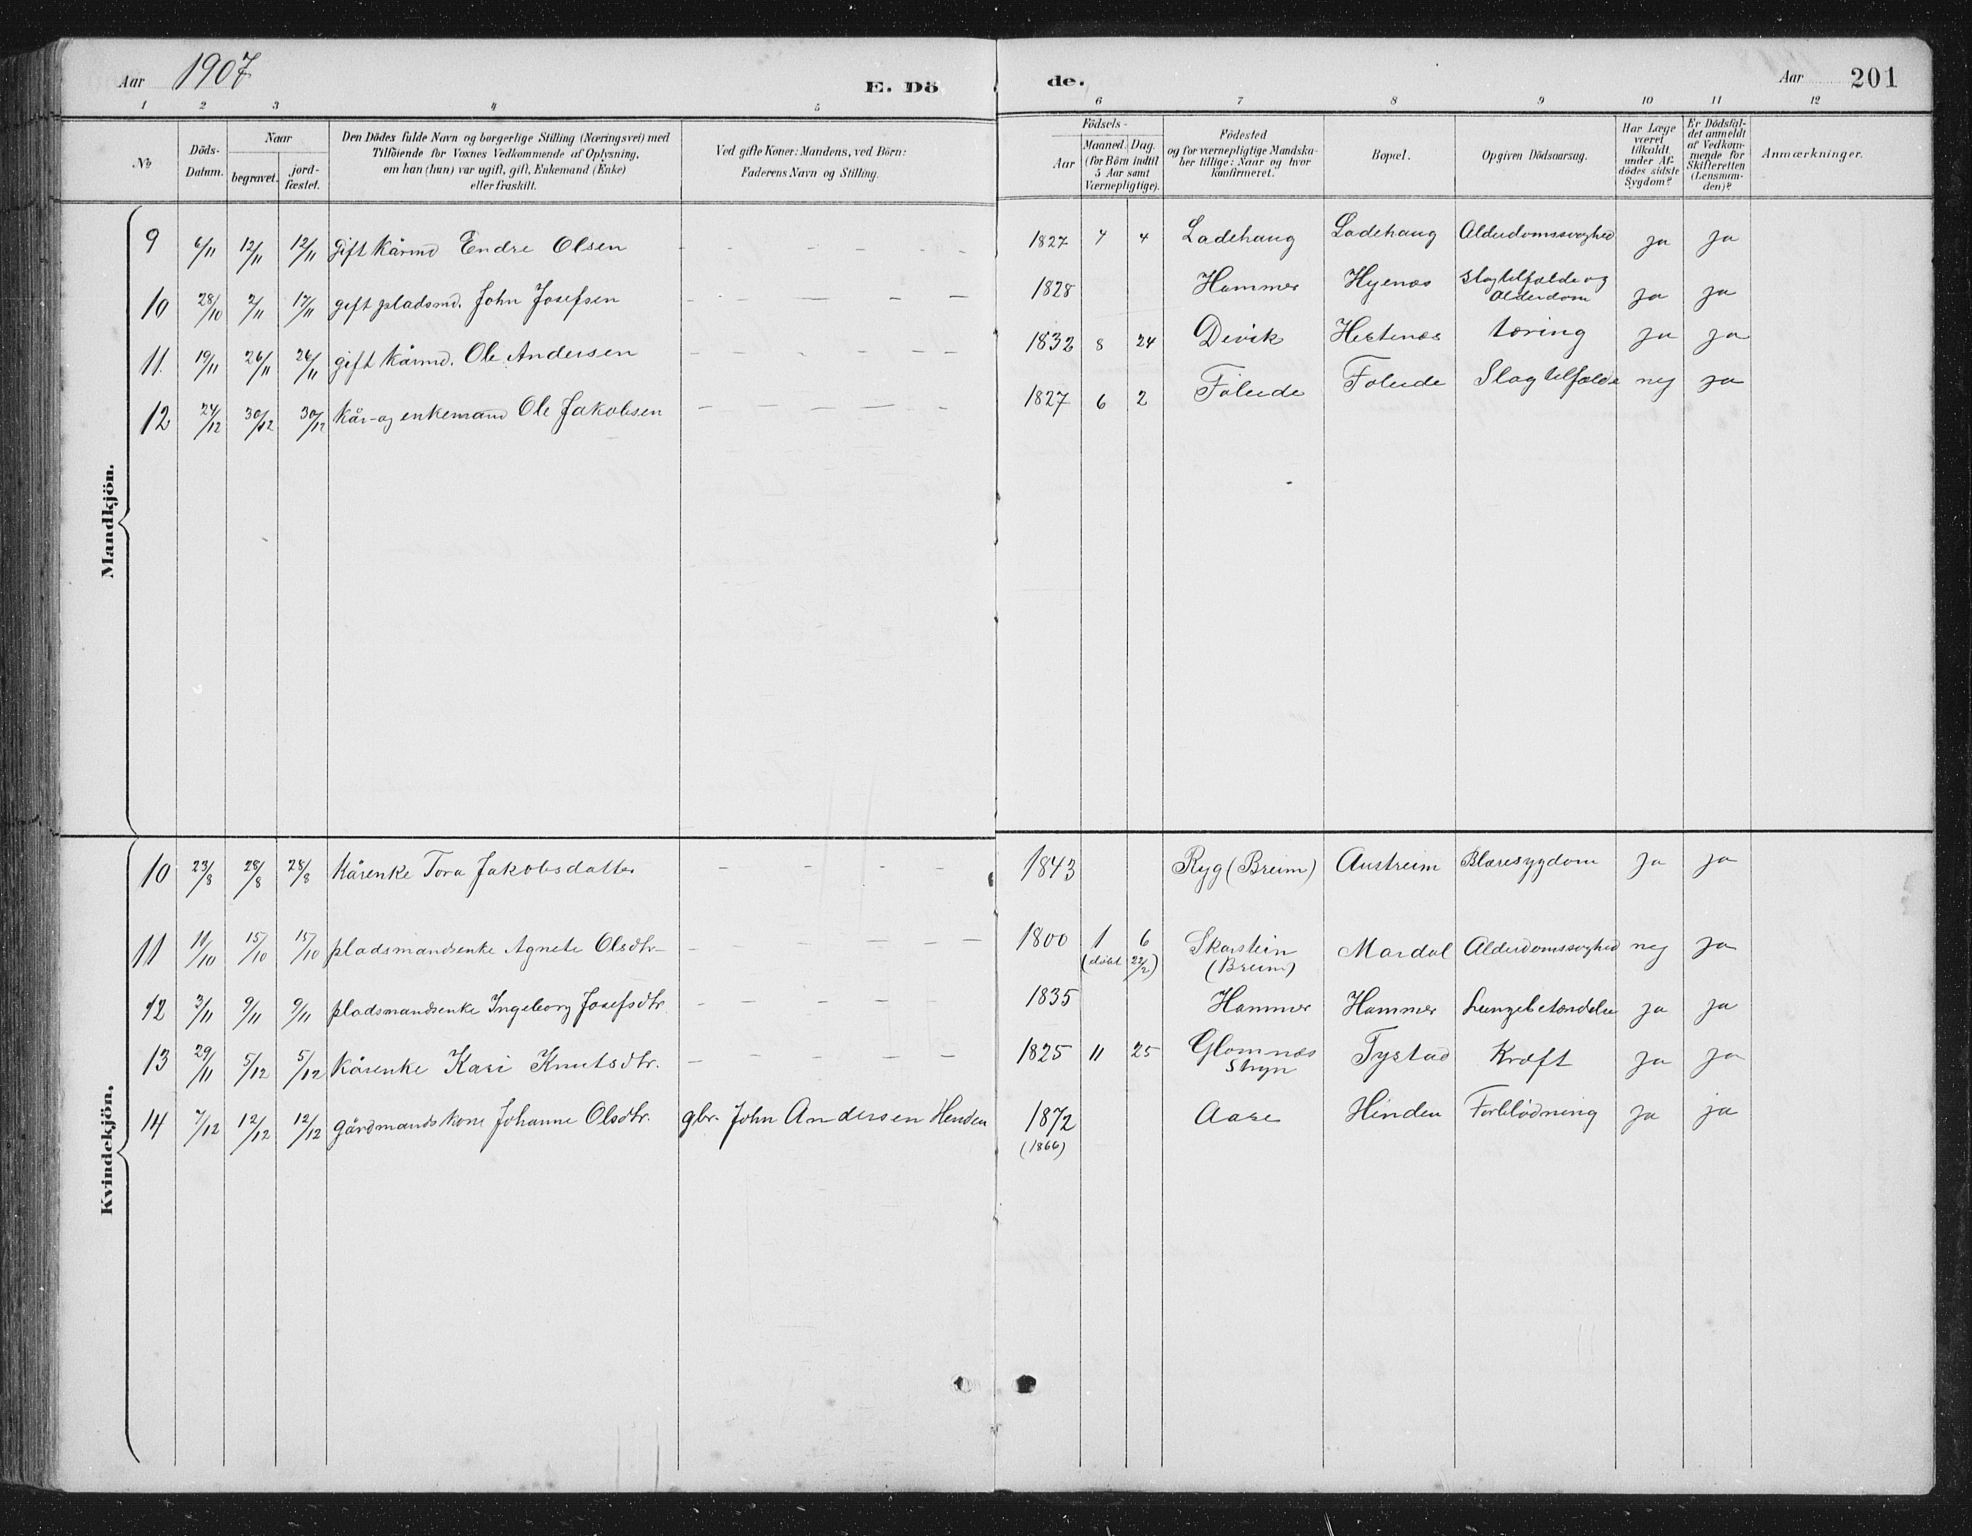 Aar 1907 E. Döde. Aar 201
1 2 3 4 5 6 7 8 9 10 11 12
No
Döds-Datum.
Naar
begravet.
jordfæstet.
Den Dödes fulde Navn og borgerlige Stilling (Næringsvei) med
Tilföiende for Voxnes Vedkommende af Oplysning,
om han (hun) var ugift, gift, Enkemand (Enke)
eller fraskilt.
Ved gifte Koner: Mandens, ved Börn:
Faderens Navn og Stilling.
Födsels-
Aar
Maaned. Dag.
(for Börn indtil
5 Aar samt
Værnepligtige).
Födested
og for værnepligtige Mandska-
ber tillige: Naar og hvor
konfirmeret.
Bopæl.
Opgiven Dödsaarsag.
Har Læge
været
tilkaldt
under Af-
dödes sidste
Sygdom?
Er Dödsfal-
det anmeldt
af Vedkom-
mende for
Skifteretten
(Lensman-
den)?
Anmærkninger.
Mandkjön.
9 6/11 12/11 12/11 gift kårmd Endre Olsen – – – – – – 1827 7 4 Ladehaug Ladehaug Alderdomssvaghed ja ja
10 28/10 2/11 17/11 gift pladsmd. John Josefsen – – – – – – 1828 Hammer Hyenæs Slagtilfælde og
Alderdom ja ja
11 19/11 26/11 26/11 gift kårmd. Ole Andersen – – – – – – 1832 8 24 Devik Hestenæs tæring ja ja
12 24/12 30/12 30/12 kår- og enkemand Ole Jakobsen – – – – – – 1827 6 2 Föleide Föleide Slagtilfælde nej ja
Kvindekjön.
10 23/8 28/8 28/8 kårenke Tora Jakobsdatter – – – – 1843 Ryg (Breim) Austreim Blæresygdom ja ja
11 11/10 15/10 15/10 pladsmandsenke Agnete Olsdtr – – – – – – 1800 1 6 Skarstein Mardal Alderdomssvaghed nej ja
(døbt 22/2) (Breim)
12 3/11 9/11 9/11 pladsmandsenke Ingeborg Josefsdtr. – – – – – 1835 Hammer Hammer Lungebetændelse ja ja
13 29/11 5/12 5/12 kårenke Kari Knutsdtr. – – – – – 1825 11 25 Glomnæs Tystad Kræft ja ja
Stryn
14 7/12 12/12 12/12 gårdmandskone Johanne Olsdtr. gbr. John Andersen Henden 1872 Aase Hinden Forblödning ja ja
(1866)